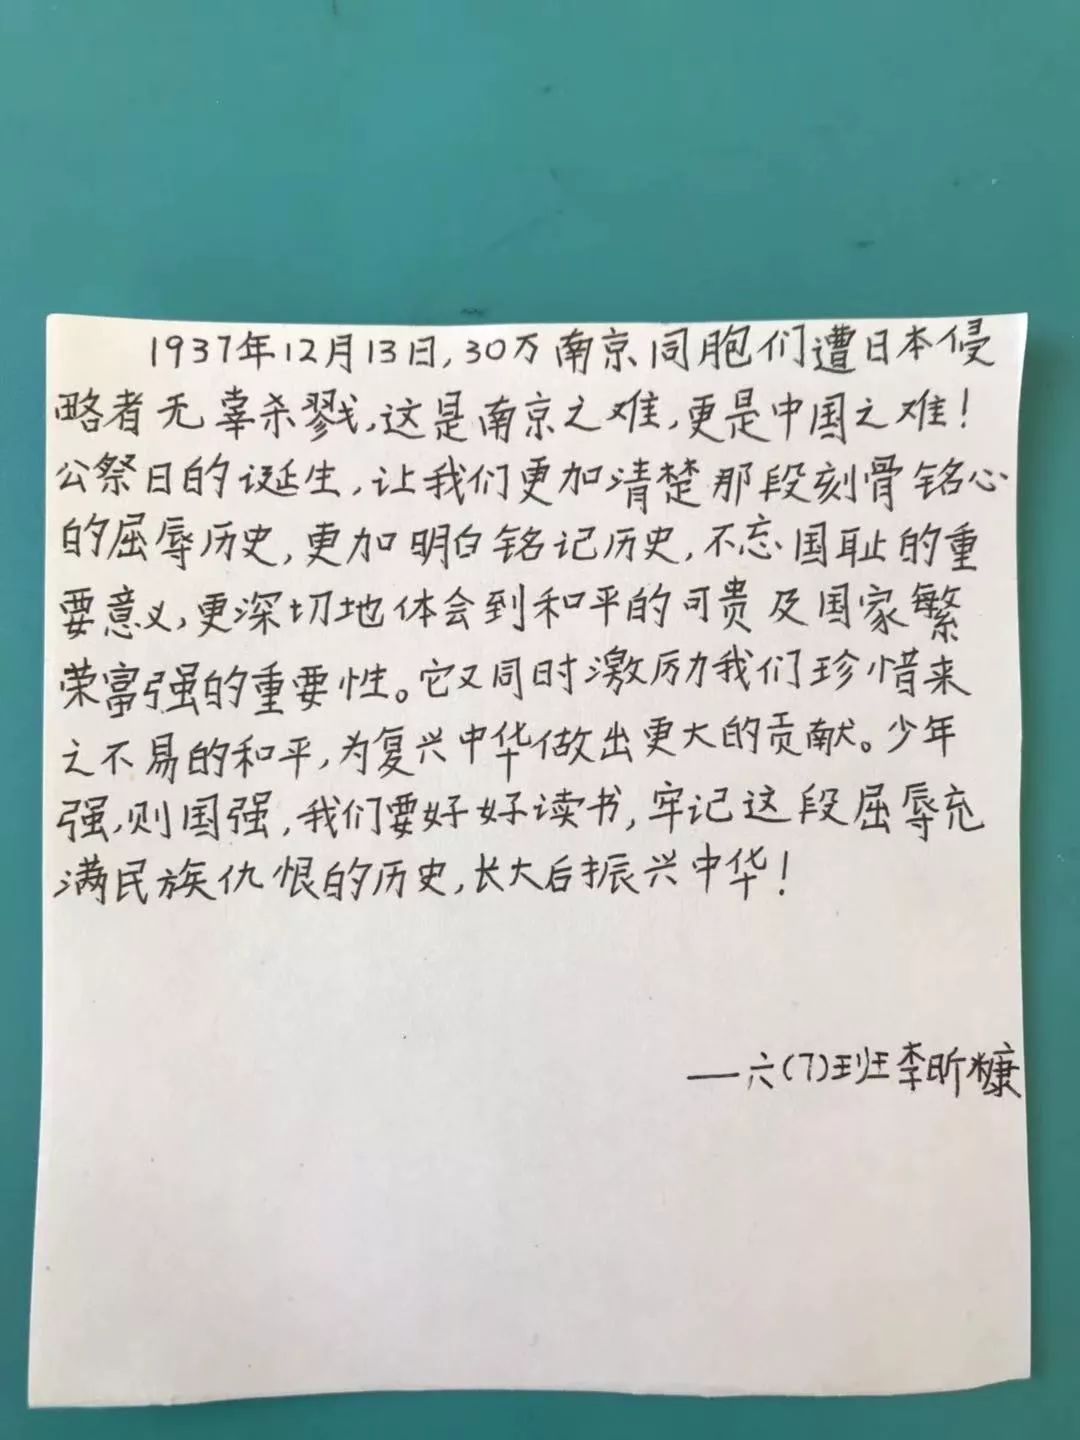 1937年12月13日,30万南京同胞们遭日本侵
略者无辜杀戮,这是南京之难,更是中国之难!
公祭日的诞生,让我们更加清楚那段刻骨铭心
的屈辱历史,更加明白铭记历史,不忘国耻的重
要意义,更深切地体会到和平的可贵及国家繁
荣富强的重要性。它又同时激厉力我们珍惜来
之不易的和平,为复兴中华做出更大的贡献。少年
强,则国强,我们要好好读书,牢记这段屈辱充
满民族仇恨的历史,长大后振兴中华!
——六(7)班李昕糠